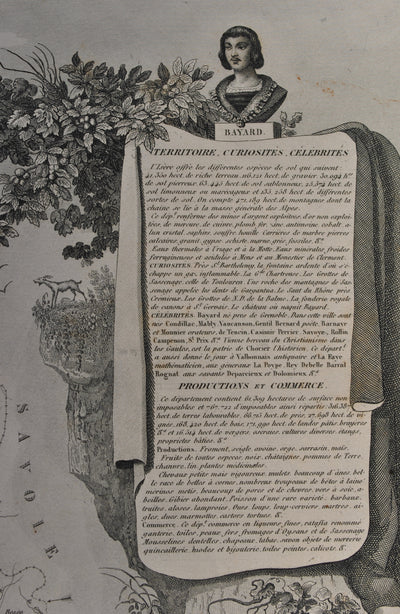 BAYARD.
TERRITOIRE, CURIOSITÉS, CÉLÉBRITÉS
L'Isère offre les différentes espèces de sol qui suivent
41,350 hect. de riche terreau, de gravier
de sol pierreux, de sol sablonneux, de
sol limoneux ou marécageux et de différentes
sortes de sol. On compte de montagnes dont la
chaîne se lie à la masse générale des Alpes.
Ce dépt. renferme des mines d'argent exploitées, d'or non exploi-
tées, de mercure, de cuivre, plomb, fer, zinc, antimoine, cobalt &
cristal, saphirs, souffre, houille. Carrières de marbre, pierres
calcaires, granit, gypse, schiste, marne, grès, fossiles, &a.
Eaux thermales à l'riage et à la Motte. Eaux minérales, froides
ferrugineuses et acidules à Mens et au Monestier de Clermont.
CURIOSITÉS. Près St. Barthelemy, la fontaine ardente d'où s'é-
chappe un gaz inflammable. La Gde. Chartreuse. Les Grottes de
Sassenage, celle de Toulouvre. Une roche des montagnes de Sas-
senage appelée les dents de Gargantua. Le Saut du Rhône près
Crémieux. Les Grottes de N.D. de la Balme. La fonderie royale
de canons à St. Gervais. Le château où naquit Bayard.
CÉLÉBRITÉS. Bayard né près de Grenoble. Dans cette ville sont
nés Condillac, Mably, Vaucanson, Gentil Bernard poète, Barnave
et Mounier orateurs, de Tencin, Casimir Perrier, Savoye, Rollin,
Campenon, St. Prix &a. Vienne berceau du Christianisme dans
les Gaules, est la patrie de Chorier l'historien. Ce départ.
a aussi donné le jour à Valbonnais antiquaire et La Faye
mathématicien, aux généraux La Poype, Rey, Debelle, Barral
Rognat, aux savants Deparcieux et Dolomieux, &a.
PRODUCTIONS ET COMMERCE.
Ce département contient hectares de surface non
imposables et d'imposables ainsi répartis:
hect. de terres labourables, hect. de prés, hect. de vi-
gnes, hect. de bois, hect. de landes, pâtis, bruyères
&a. et hect. de vergers, oseraies, cultures diverses, étangs,
propriétés bâties, &a.
Productions. Froment, seigle, avoine, orge, sarrasin, maïs.
Fruits de toutes espèces, noix, châtaignes, pommes de Terre,
chanvre, lin, plantes médicinales.
Chevaux petits mais vigoureux, mulets, beaucoup d'ânes, bel-
le race de bêtes à cornes, nombreux troupeaux de bêtes à laine
mérinos, métis, beaucoup de porcs et de chèvres, vers à soie, a-
beilles. Gibier abondant. Poisson d'une race variée: barbeau,
truites, aloses, lamproies. Ours, loups, loup-cerviers, martres, ai-
gles, ducs, marmottes, castors, tortues, &a.
Commerce. Ce dépt. commerce en liqueurs fines, ratafia renommé
ganterie, toiles, peaux, fers, fromages d'Oysans et de Sassenage
Mousselines, dentelles, chapeaux, tabac, savon, objets de mercerie
quincaillerie, modes et bijouterie, toiles peintes, calicots, &a.
SAVOIE